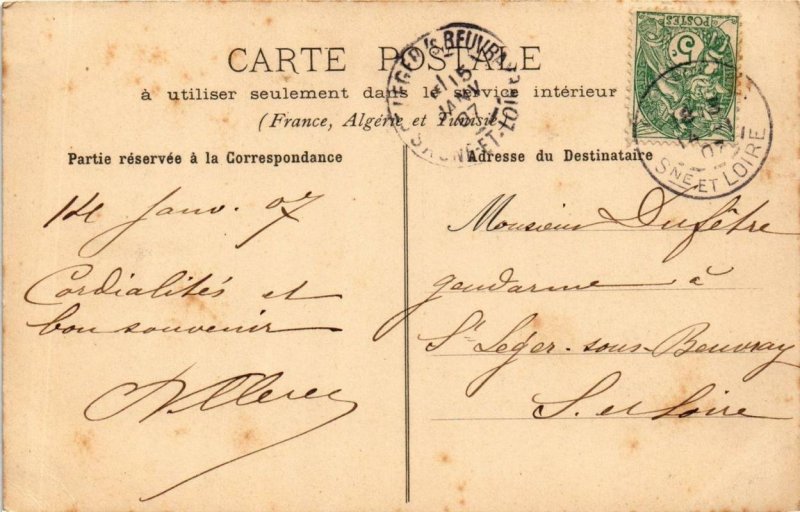 CARTE POSTALE
à utiliser seulement dans le service intérieur
(France, Algérie et Tunisie)
Sᵗ LEGER S/s BEUVRAY
15
JANV
07
SAONE-ET-LOIRE
POSTES
5
14
07
SNE ET LOIRE
Partie réservée à la Correspondance
14 Janv. 07
Cordialités et
bon souvenir
Adresse du Destinataire
Monsieur Dufêtre
gendarme à
St Léger-sous-Beuvray
S. et Loire